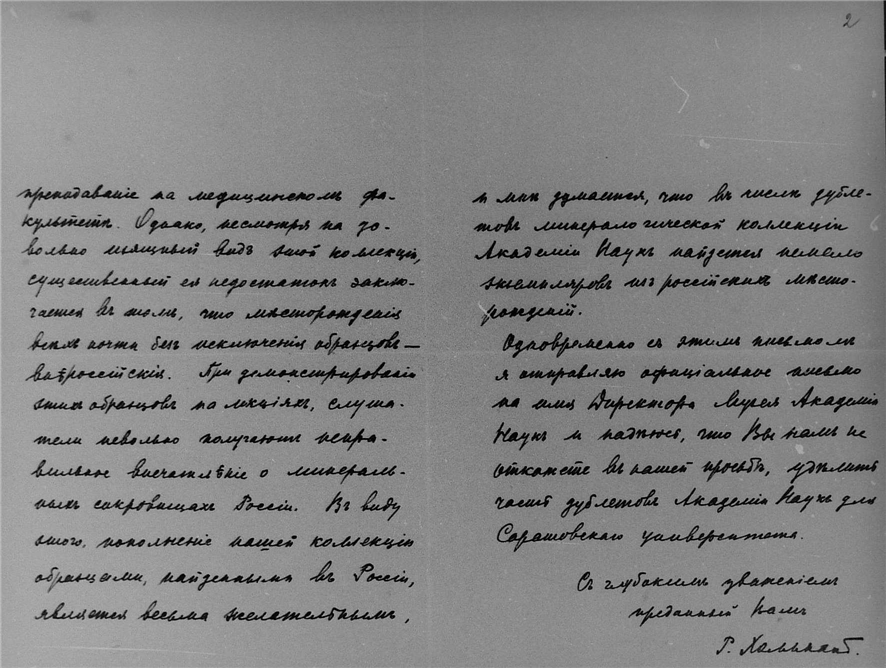 2
преподаваніе на медицинскомъ фа-
культетѣ. Однако, несмотря на до-
вольно изящный видъ этой коллекціи,
существенный ея недостатокъ заклю-
чается въ томъ, что мѣсторожденія
всѣхъ почти безъ исключенія образцовъ —
внѣроссійскія. При демонстрированіи
этихъ образцовъ на лекціяхъ, слуша-
тели невольно получаютъ непра-
вильное впечатлѣніе о минераль-
ныхъ сокровищахъ Россіи. Въ виду
этого, пополненіе нашей коллекціи
образцами, найденными въ Россіи,
является весьма желательнымъ,
и мнѣ думается, что въ числѣ дубле-
товъ минералогической коллекціи
Академіи Наукъ найдется немало
экземпляровъ изъ россійскихъ мѣсто-
рожденій.
Одновременно съ этимъ письмомъ
я отправляю офиціальное письмо
на имя Директора Музея Академіи
Наукъ и надѣюсь, что Вы намъ не
откажете въ нашей просьбѣ, удѣлить
часть дублетовъ Академіи Наукъ для
Саратовскаго университета.
Съ глубокимъ уваженіемъ
преданный Вамъ
Р. Хольнантъ.